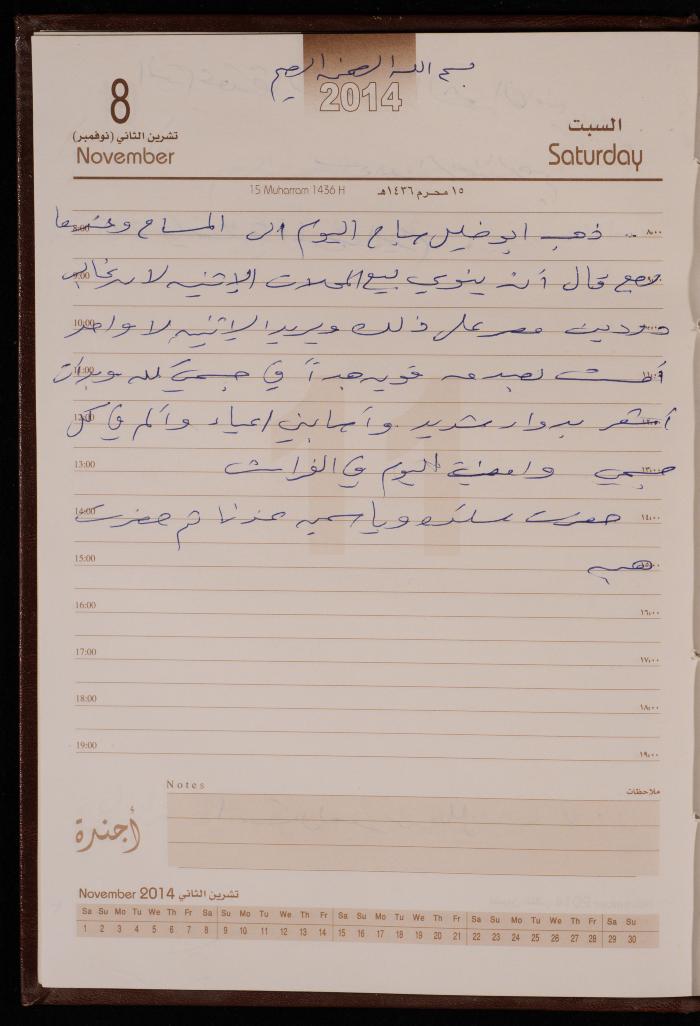 بسم الله الرحمن الرحيم
2014
8
تشرين الثاني (نوفمبر)
November
السبت
Saturday
15 Muharram 1436 H
١٥ محرم ١٤٣٦هـ
8:00 ذهب ابو خليل صباح اليوم الى المساح وعندما ٨:٠٠
9:00 رجع قال أنه ينوي بيع المحلات الإثنيه لا
10:00 على ذلك ويريد الإثنيه لا واحد
11:00 بصدمه قويه جداً في جسمي كله وبدأت ١١:٠٠
12:00 أشعر بدوار شديد وأصابني اعياء وألم في كل ١٢:٠٠
13:00 جسمي وامضيت اليوم في الفراش ١٣:٠٠
14:00 حضرت وياسمين عندنا ثم حضرت ١٤:٠٠
15:00 هبه ١٥:٠٠
16:00 ١٦:٠٠
17:00 ١٧:٠٠
18:00 ١٨:٠٠
19:00 ١٩:٠٠
Notes ملاحظات
أجندة
November 2014 تشرين الثاني
Sa Su Mo Tu We Th Fr Sa Su Mo Tu We Th Fr Sa Su Mo Tu We Th Fr Sa Su Mo Tu We Th Fr Sa Su
1 2 3 4 5 6 7 8 9 10 11 12 13 14 15 16 17 18 19 20 21 22 23 24 25 26 27 28 29 30